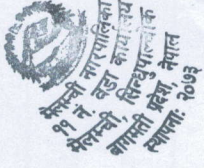 मेलम्ची नगरपालिका
११ नं. वडा कार्यालय
मेलम्ची, सिन्धुपाल्चोक
बागमती प्रदेश, नेपाल
स्थापना: २०७३